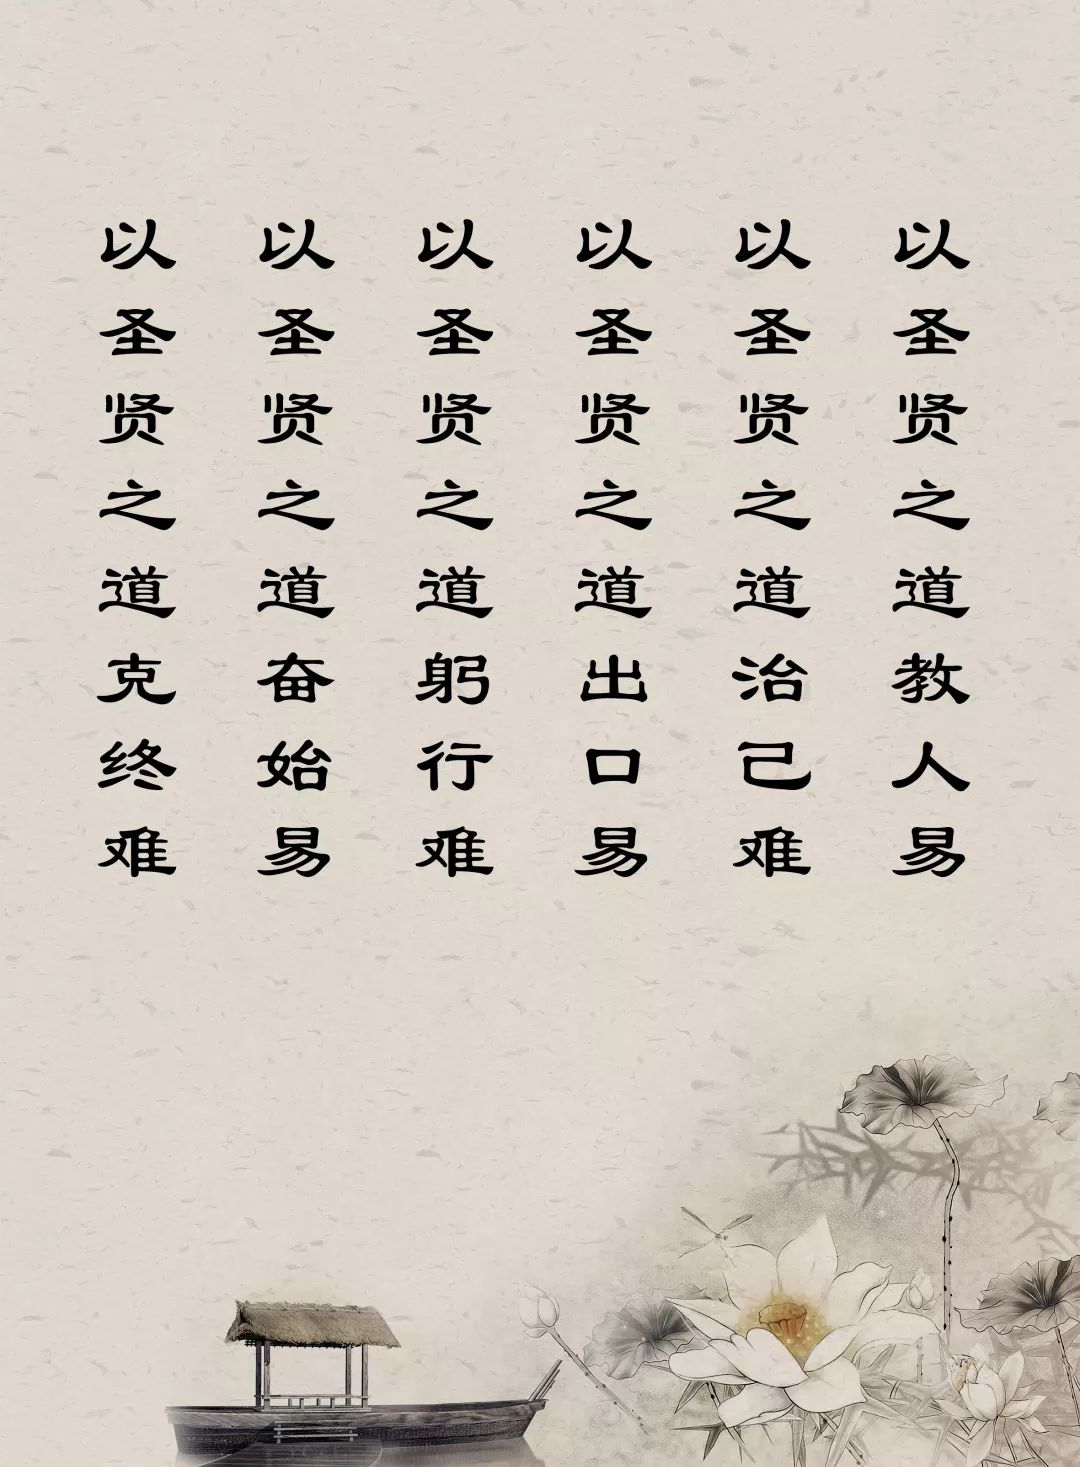 以圣贤之道教人易
以圣贤之道治己难
以圣贤之道出口易
以圣贤之道躬行难
以圣贤之道奋始易
以圣贤之道克终难